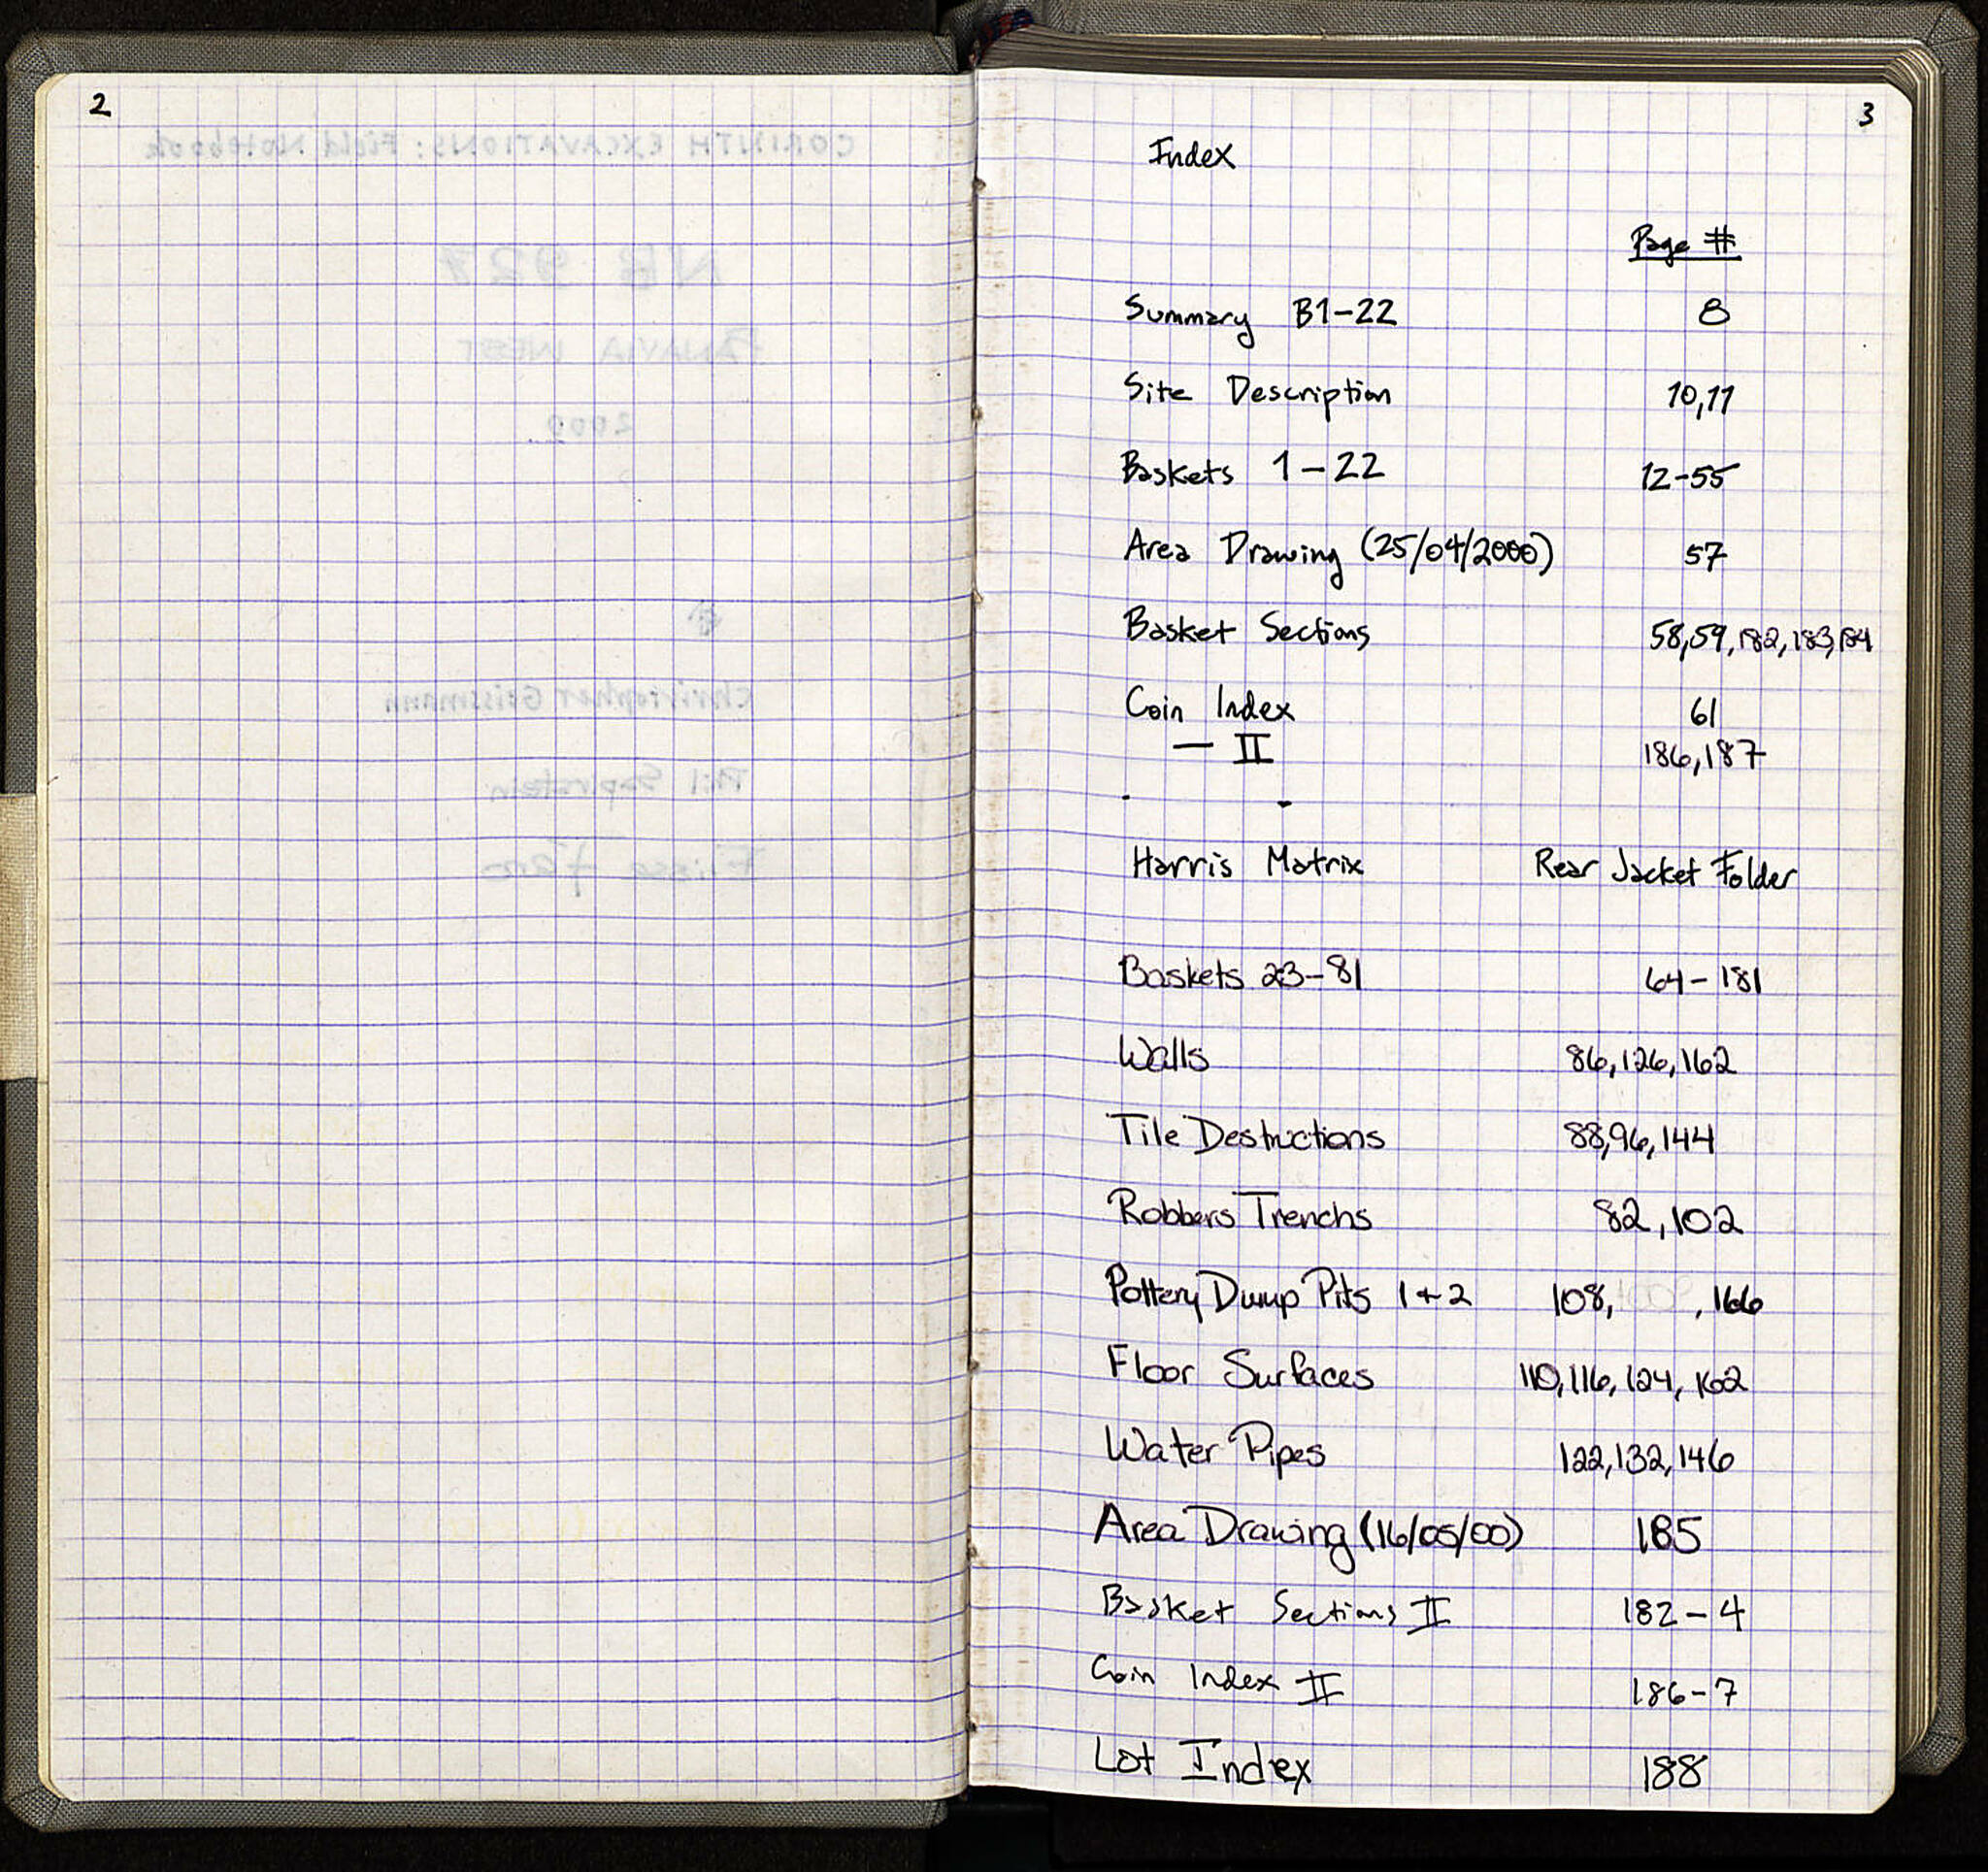 2
3
Index
Page #
Summary B1-22 8
Site Description 10,11
Baskets 1-22 12-55
Area Drawing (25/04/2000) 57
Basket Sections 58,59,182,183,184
Coin Index 61
— II 186,187
Harris Matrix Rear Jacket Folder
Baskets 23-81 64-181
Walls 86,126,162
Tile Destructions 88,96,144
Robbers Trenchs 82,102
Pottery Dump Pits 1+2 108, , 166
Floor Surfaces 110,116,124,162
Water Pipes 122,132,146
Area Drawing (16/05/00) 185
Basket Sections II 182-4
Coin Index II 186-7
Lot Index 188